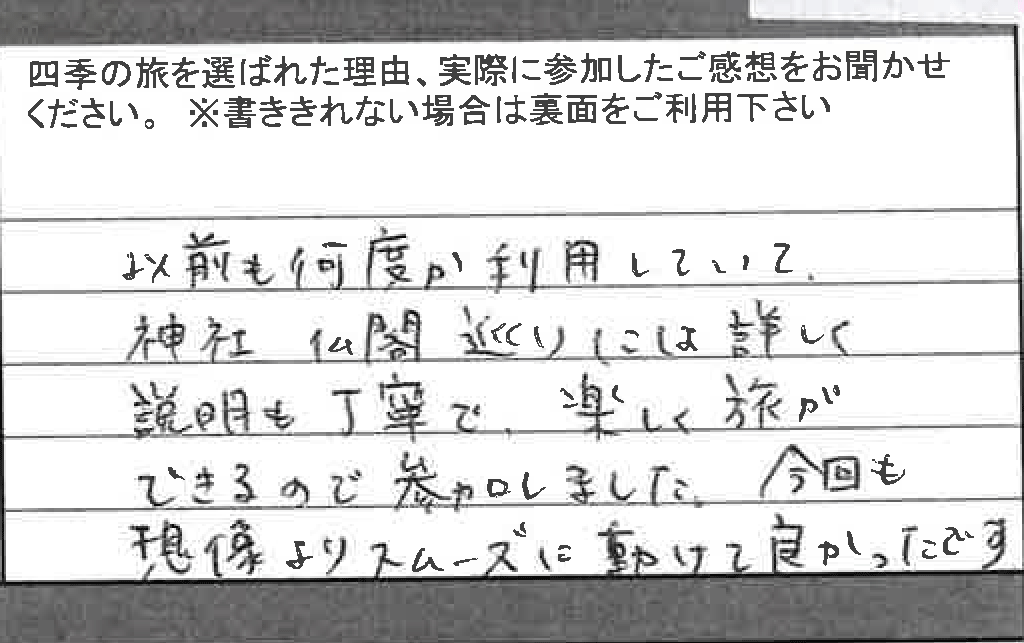 四季の旅を選ばれた理由、実際に参加したご感想をお聞かせ
ください。 ※書ききれない場合は裏面をご利用下さい
以前も何度か利用していて、
神社 仏閣 巡りには詳しく
説明も丁寧で、楽しく旅が
できるので参加しました。今回も
想像よりスムーズに動けて良かったです